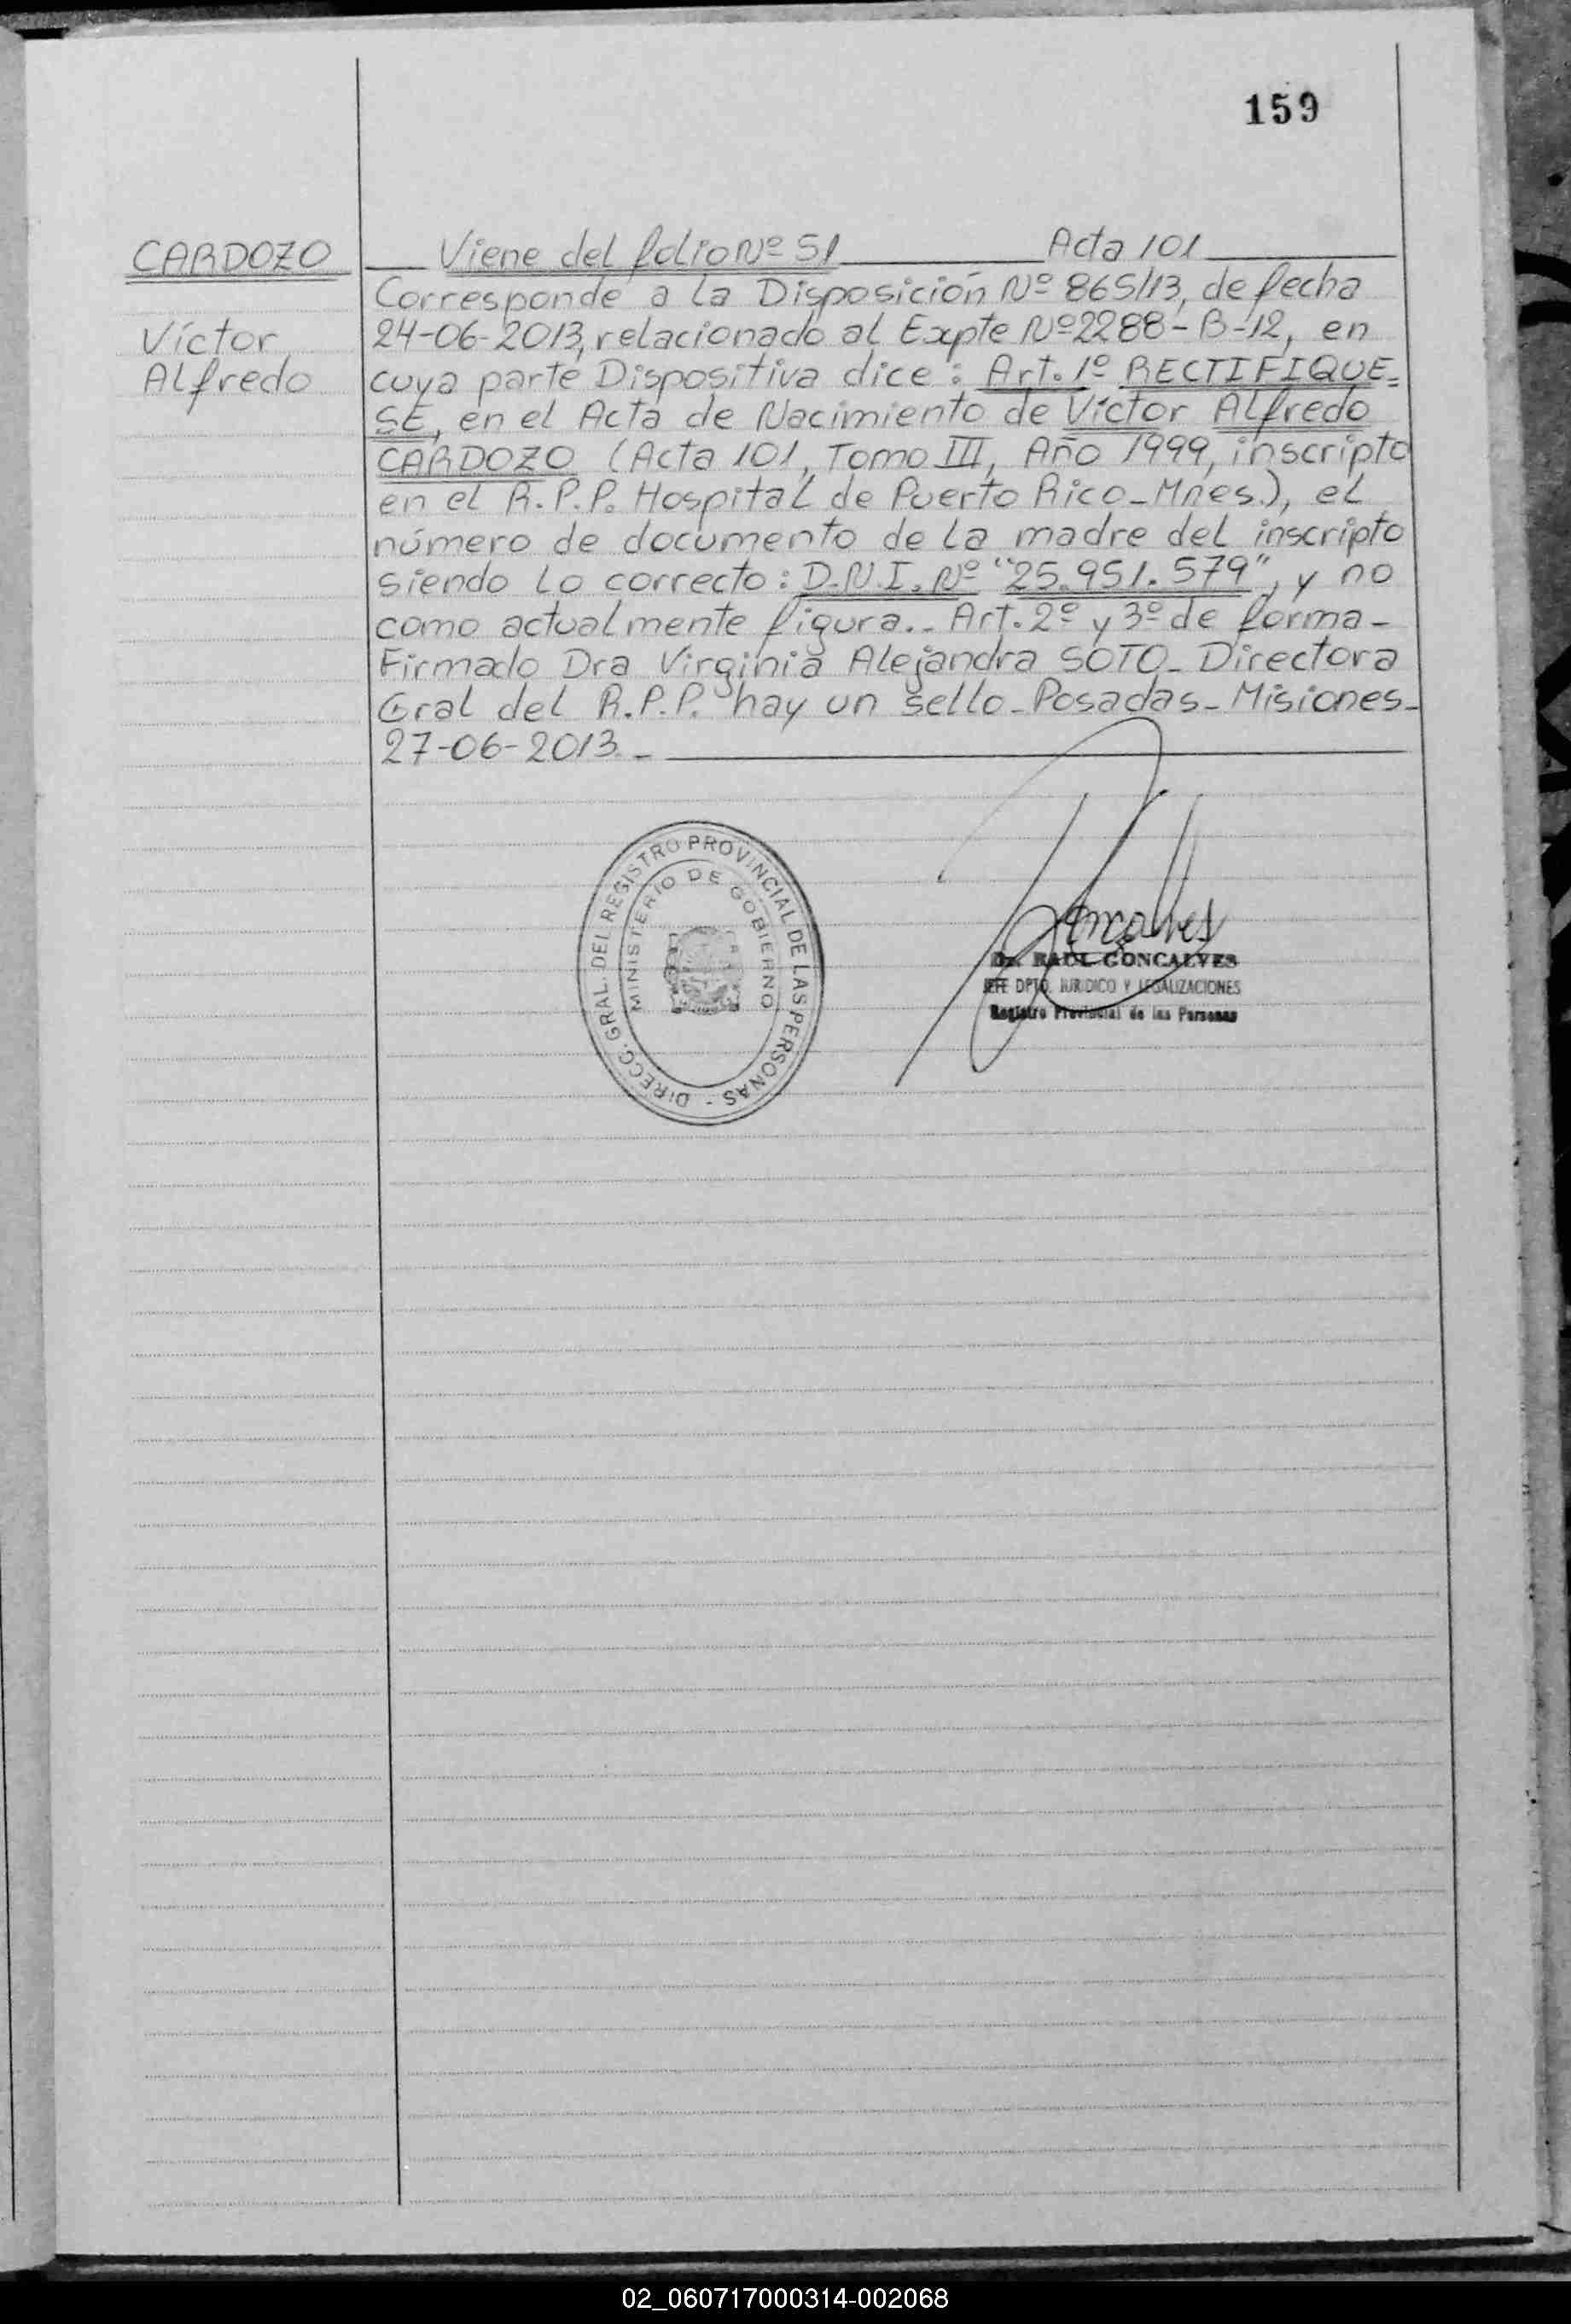 159
CARDOZO
Víctor
Alfredo
Viene del folio Nº 51 Acta 101
Corresponde a la Disposición Nº 865/13, de fecha
24-06-2013, relacionado al Expte Nº 2288-B-12, en
cuya parte Dispositiva dice: Art. 1º RECTIFIQUE=
SE, en el Acta de Nacimiento de Víctor Alfredo
CARDOZO (Acta 101, Tomo III, Año 1999, inscripto
en el R.P.P. Hospital de Puerto Rico-Mnes.), el
número de documento de la madre del inscripto
siendo lo correcto: D.N.I. Nº "25.951.579", y no
como actualmente figura.- Art. 2º y 3º de forma-
Firmado Dra Virginia Alejandra SOTO- Directora
Gral del R.P.P. hay un sello- Posadas- Misiones-
27-06-2013.-
DIRECC. GRAL. DEL REGISTRO PROVINCIAL DE LAS PERSONAS -
MINISTERIO DE GOBIERNO
Goncalves
Dr. RAUL GONCALVES
JEFE DPTO. JURIDICO Y LEGALIZACIONES
Registro Provincial de las Personas
02_060717000314-002068